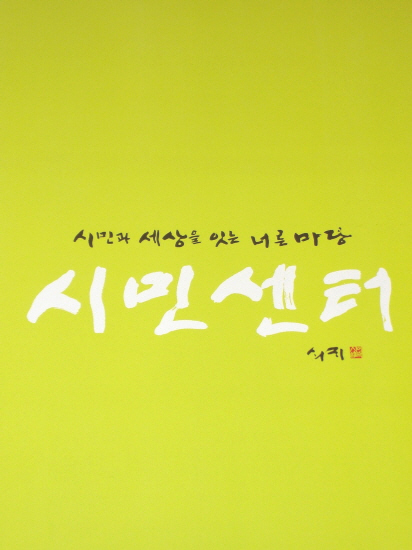 시민과 세상을 잇는 너른 마당
시민센터